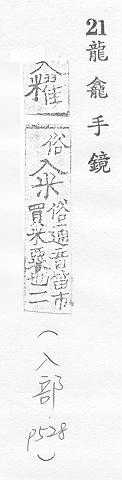 21龍龕手鏡
糴 俗籴俗通音笛市買米穀也二(入部 p528)